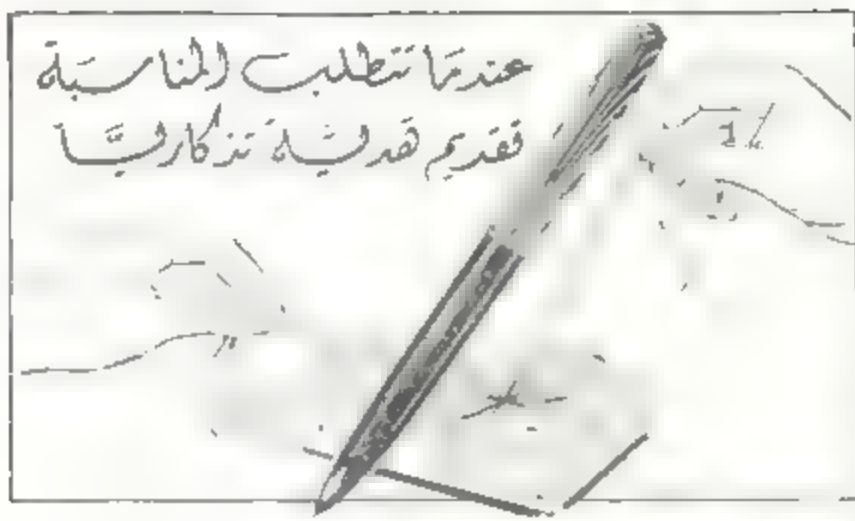 عندما تتطلب المناسبة
تقديم هدية تذكارية